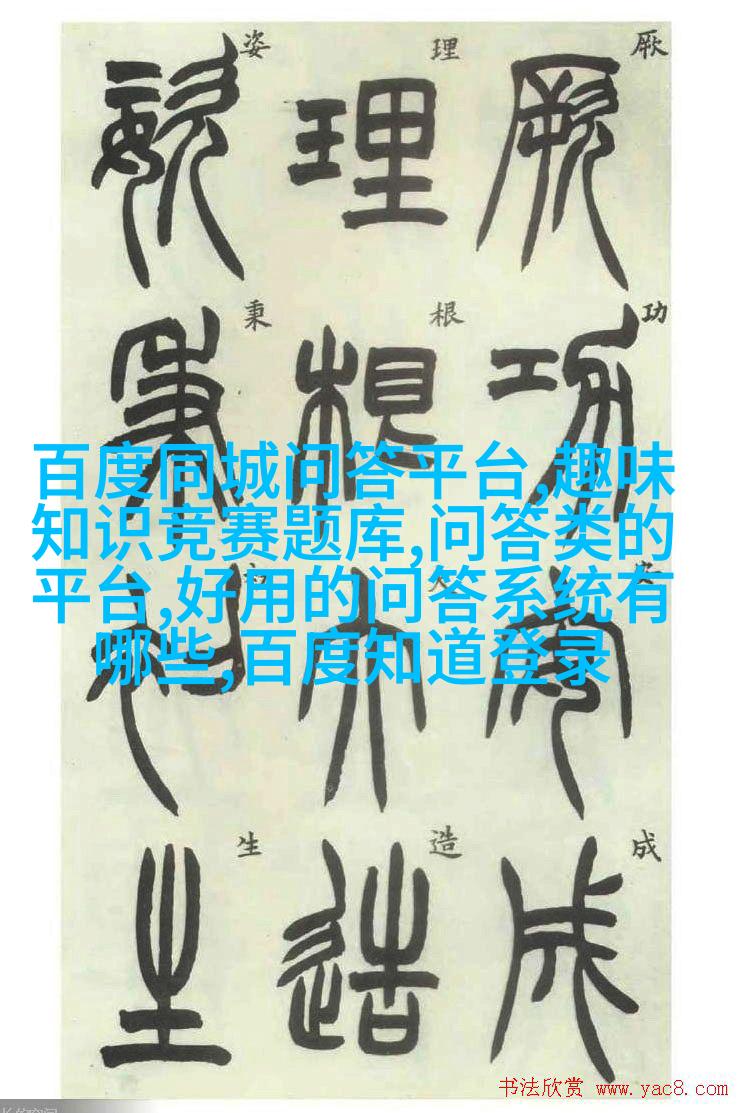 厥功安成
理根大造
姿秉生
百度同城问答平台,趣味
知识竞赛题库,问答类的
平台,好用的问答系统有
哪些,百度知道登录
书法欣赏 www.yac8.com